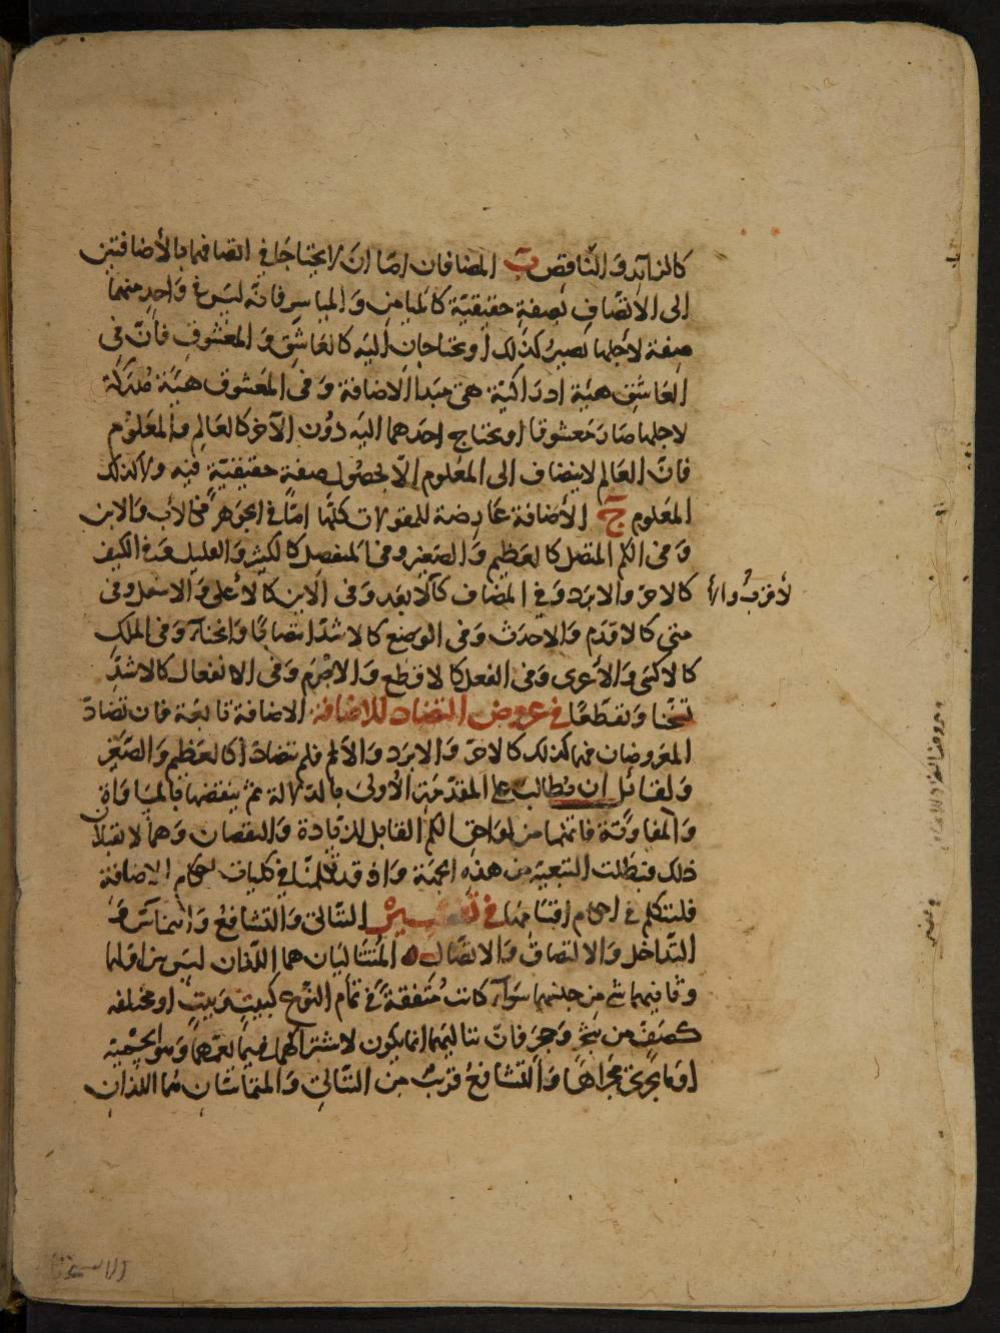 كالزايد والناقص ب المضافان امّا ان لا يحتاجا في اتصافهما بالأضافتين
الى الاتصاف بصفة حقيقيّة كالميامن والمياسر فانه ليس في واحد منهما
صفة لاجلها يصير كذلك او يحتاجان اليه كالعاشق والمعشوق فانّ في
العاشق هيئة ادراكيّة هي مبدا الاضافة وفي المعشوق هيئة مدركة
لاجلها صار معشوقا او يحتاج احدهما اليه دون الآخر كالعالم والمعلوم
فانّ العالم لا يضاف الى المعلوم الّا بحصول صفة حقيقيّة فيه ولا كذلك
المعلوم ج الأضافة عارضة للمقولات كلّها امّا في الجوهر فكالأب والابن
وفي الكم المتصل كالعظيم والصغير وفي المنفصل كالكثير والقليل وفي الكيف
كالاحرّ والابرد وفي المضاف كالابعد وفي الاين كالأعلى والاسفل وفي
لأقرب وا
متى كالاقدم والاحدث وفي الوضع كالاشدّ انتصابًا وانحناء وفي الملك
كالاكسى والأعرى وفي الفعل كالاقطع والاجرم وفي الانفعال كالاشدّ
تسخّنا وتقطّعًا في عروض التضاد للاضافة الاضافة تابعة فان تضادّ
المعروضان فهما كذلك كالاحرّ والابرد والّا لم فلم تتضادّا كالعظيم والصغير
ولقائل ان يطالب على المقدّمة الأولى بالدلالة ثم ينقضها بالمساواة
والمفاوتة فانهما من لواحق الكم القابل للزيادة والنقصان وهما لا تقبلان
ذلك فبطلت التبعيّة من هذه الجهة واذ قد تكلمنا في كليات احكام الاضافة
فلنتكلم في احكام اقسامها في تفسير التتالي والتشافع والتماسّ و
التداخل والالتصاق والاتصال ا المتتاليان هما اللذان ليس بين اولهما
وثانيهما شي من جنسهما سواء كانت متّفقة في تمام النوع كبيت وبيت او مختلفه
كصفّ من شجر وحجر فانّ تتاليهما انما يكون لاشتراكهما فيما يعمّهما وهو الجسميّة
او ما يجري مجراها والتشافع قرب من التتالي والمتماسّان هما اللذان